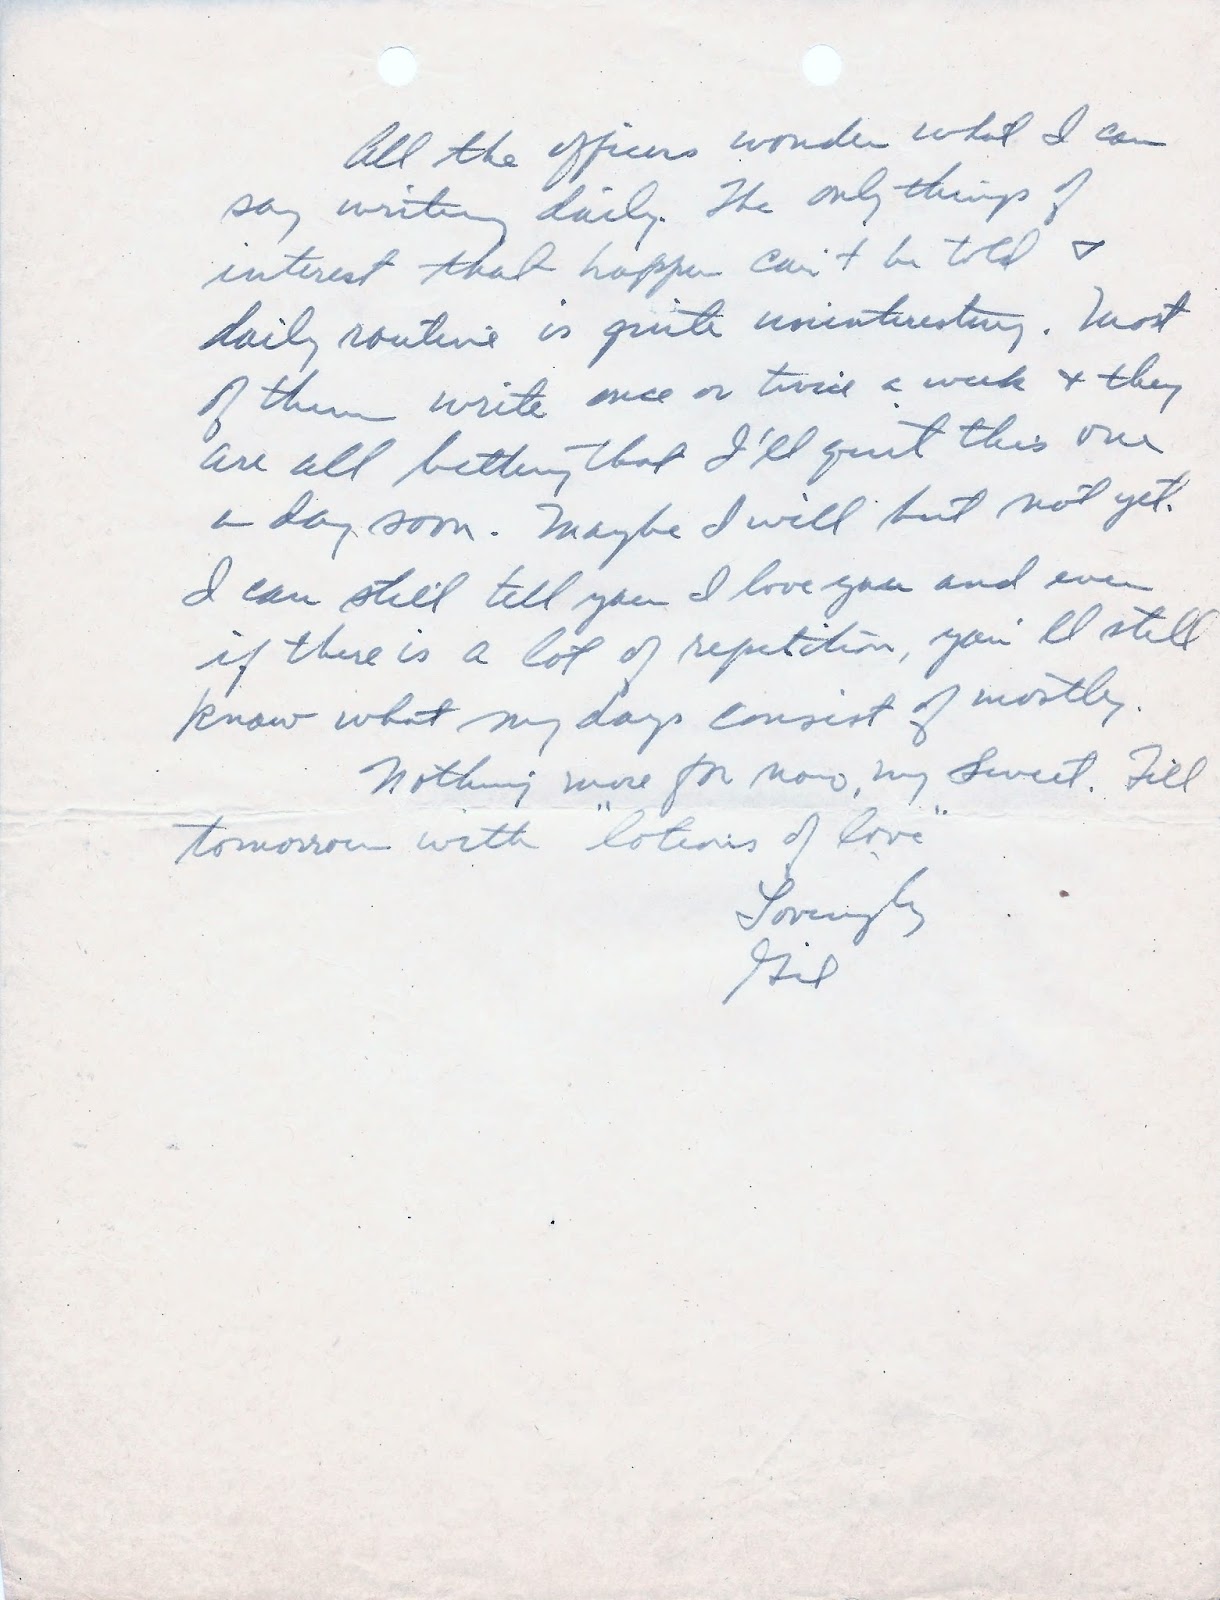 All the officers wonder what I can
say writing daily. The only things of
interest that happen can't be told &
daily routine is quite uninteresting. Most
of them write once or twice a week & they
are all betting that I'll quit this one
a day soon. Maybe I will but not yet.
I can still tell you I love you and even
if there is a lot of repetition, you'll still
know what my days consist of mostly.
Nothing more for now, my Sweet. Till
tomorrow with " of love"
Lovingly
Gil